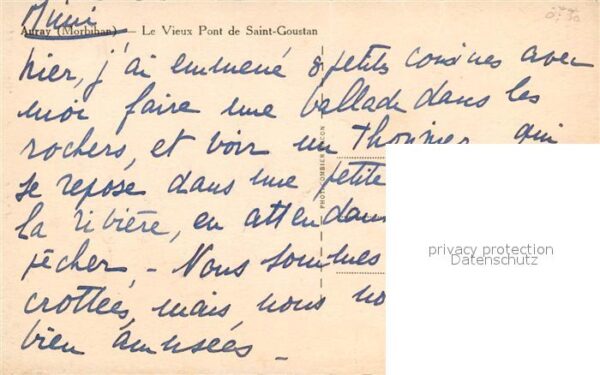 Mimi
0,30
Auray (Morbihan) — Le Vieux Pont de Saint-Goustan
hier, j'ai emmené 8 petits cousines avec
moi faire une ballade dans les
rochers, et voir un Thonnier qui
se repose dans une petite
la rivière, en attendan
pêcher, - Nous sommes
crottées, mais nous no
bien amusées -
PHOT. COMBIER MACON
privacy protection
Datenschutz